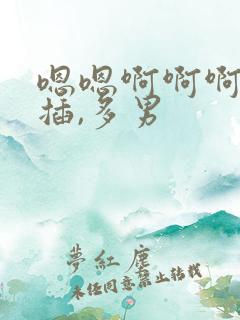 嗯嗯啊啊啊
插,多男
夢紅塵
未经同意禁止转载